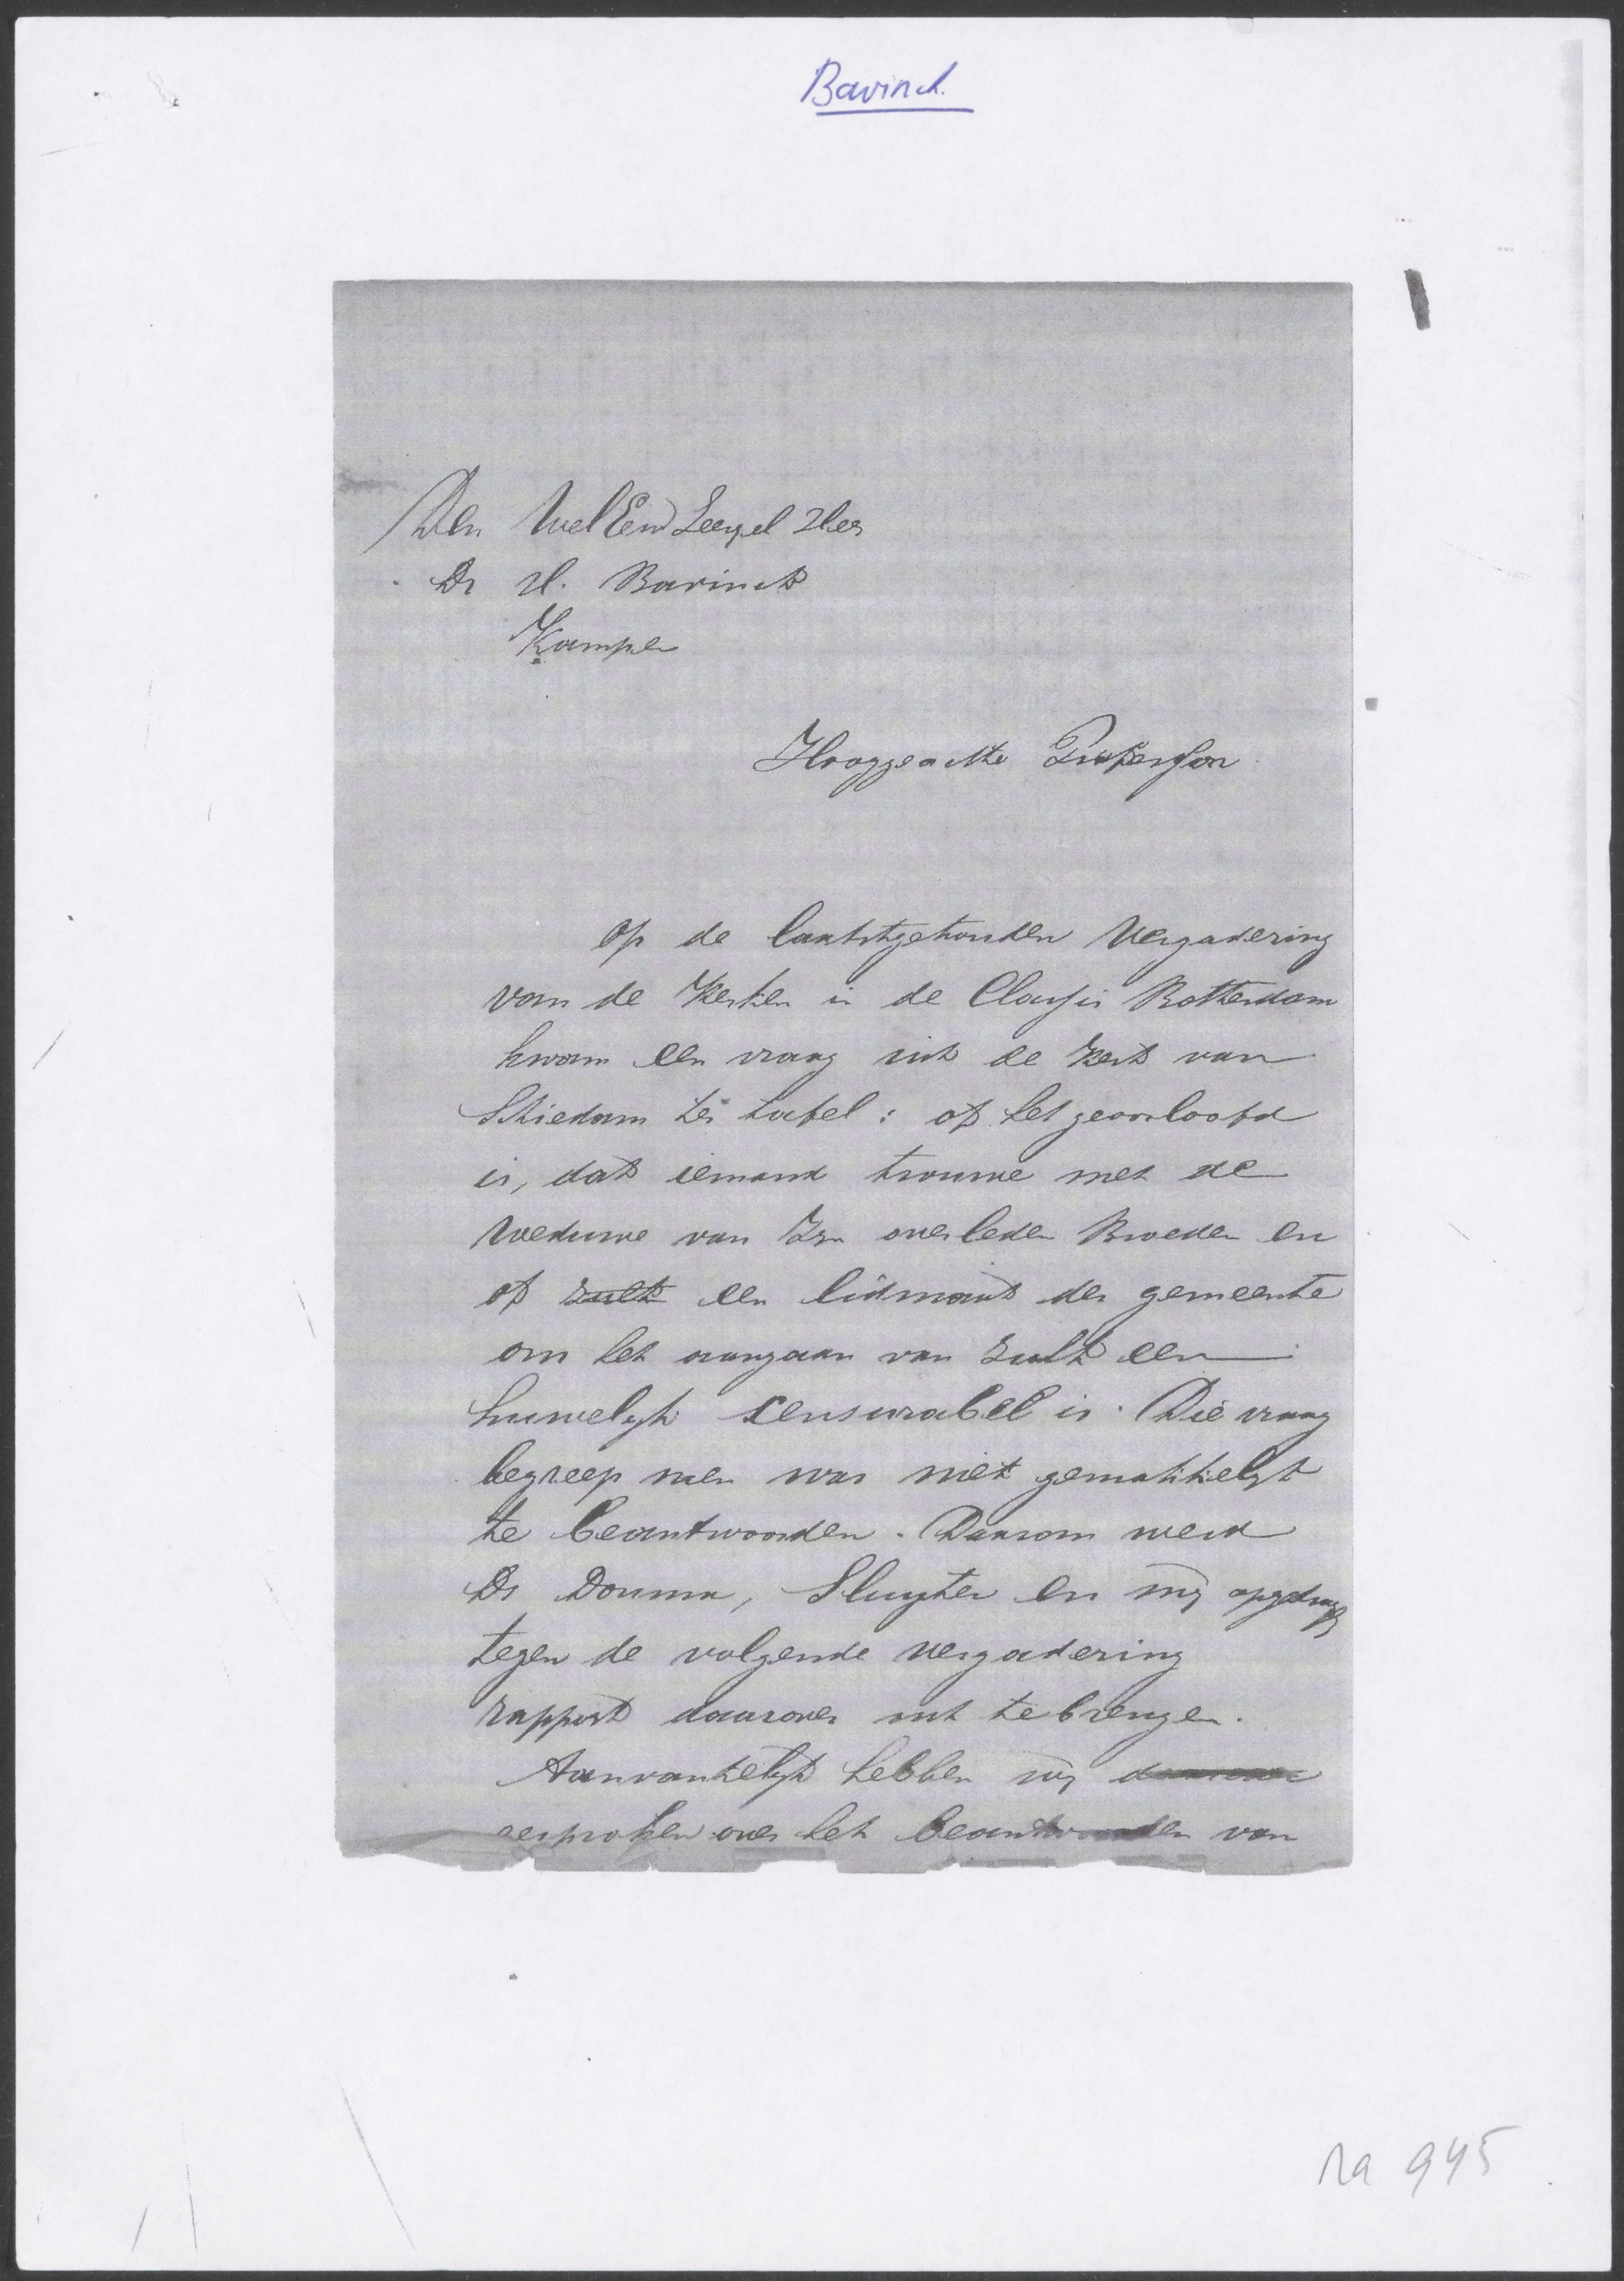 Bavinck.
Den WelEerw Zeergel Heer
Dr H. Bavinck
Kampen
Hooggeachte Professor
Op de laatstgehouden Vergadering
van de Kerken in de Classis Rotterdam
kwam een vraag uit de Kerk van
Schiedam ter tafel: of het geoorloofd
is, dat iemand trouwe met de
Weduwe van Zyn overleden Broeder en
of zulk een lidmaat der gemeente
om het aangaan van zulk een
huwelyk censurabel is. Die vraag
begreep men was niet gemakkelyk
te beantwoorden. Daarom werd
Ds Douma, Sluyter en my opgedragen
tegen de volgende vergadering
rapport daarover uit te brengen.
Aanvankelyk hebben wy
gesproken over het beantwoorden van
na 945